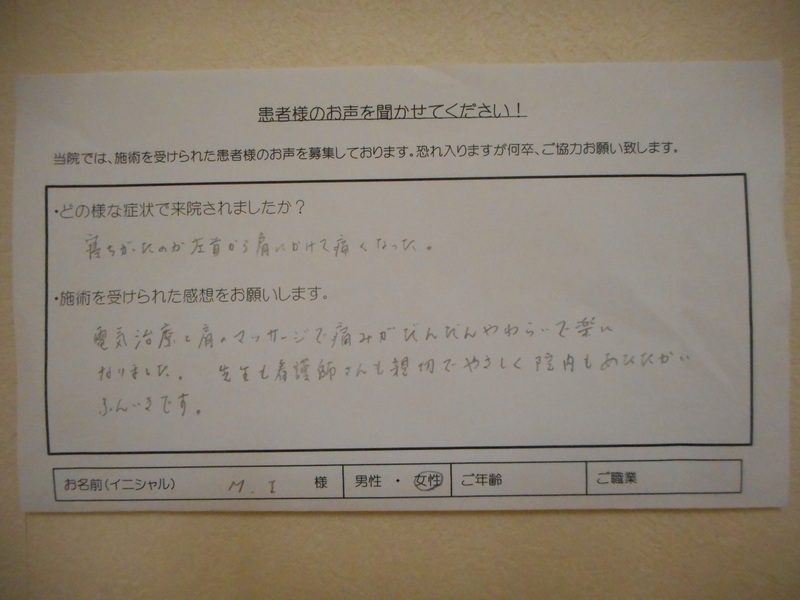 患者様のお声を聞かせてください！
当院では、施術を受けられた患者様のお声を募集しております。恐れ入りますが何卒、ご協力お願い致します。
・どの様な症状で来院されましたか？
寝ちがったのか左首から肩にかけて痛くなった。
・施術を受けられた感想をお願いします。
電気治療と肩のマッサージで痛みがだんだんやわらいで楽に
なりました。 先生も看護師さんも親切でやさしく院内もあたたかい
ふんいきです。
お名前（イニシャル） M.I 様 男性 ・ 女性 ご年齢 ご職業